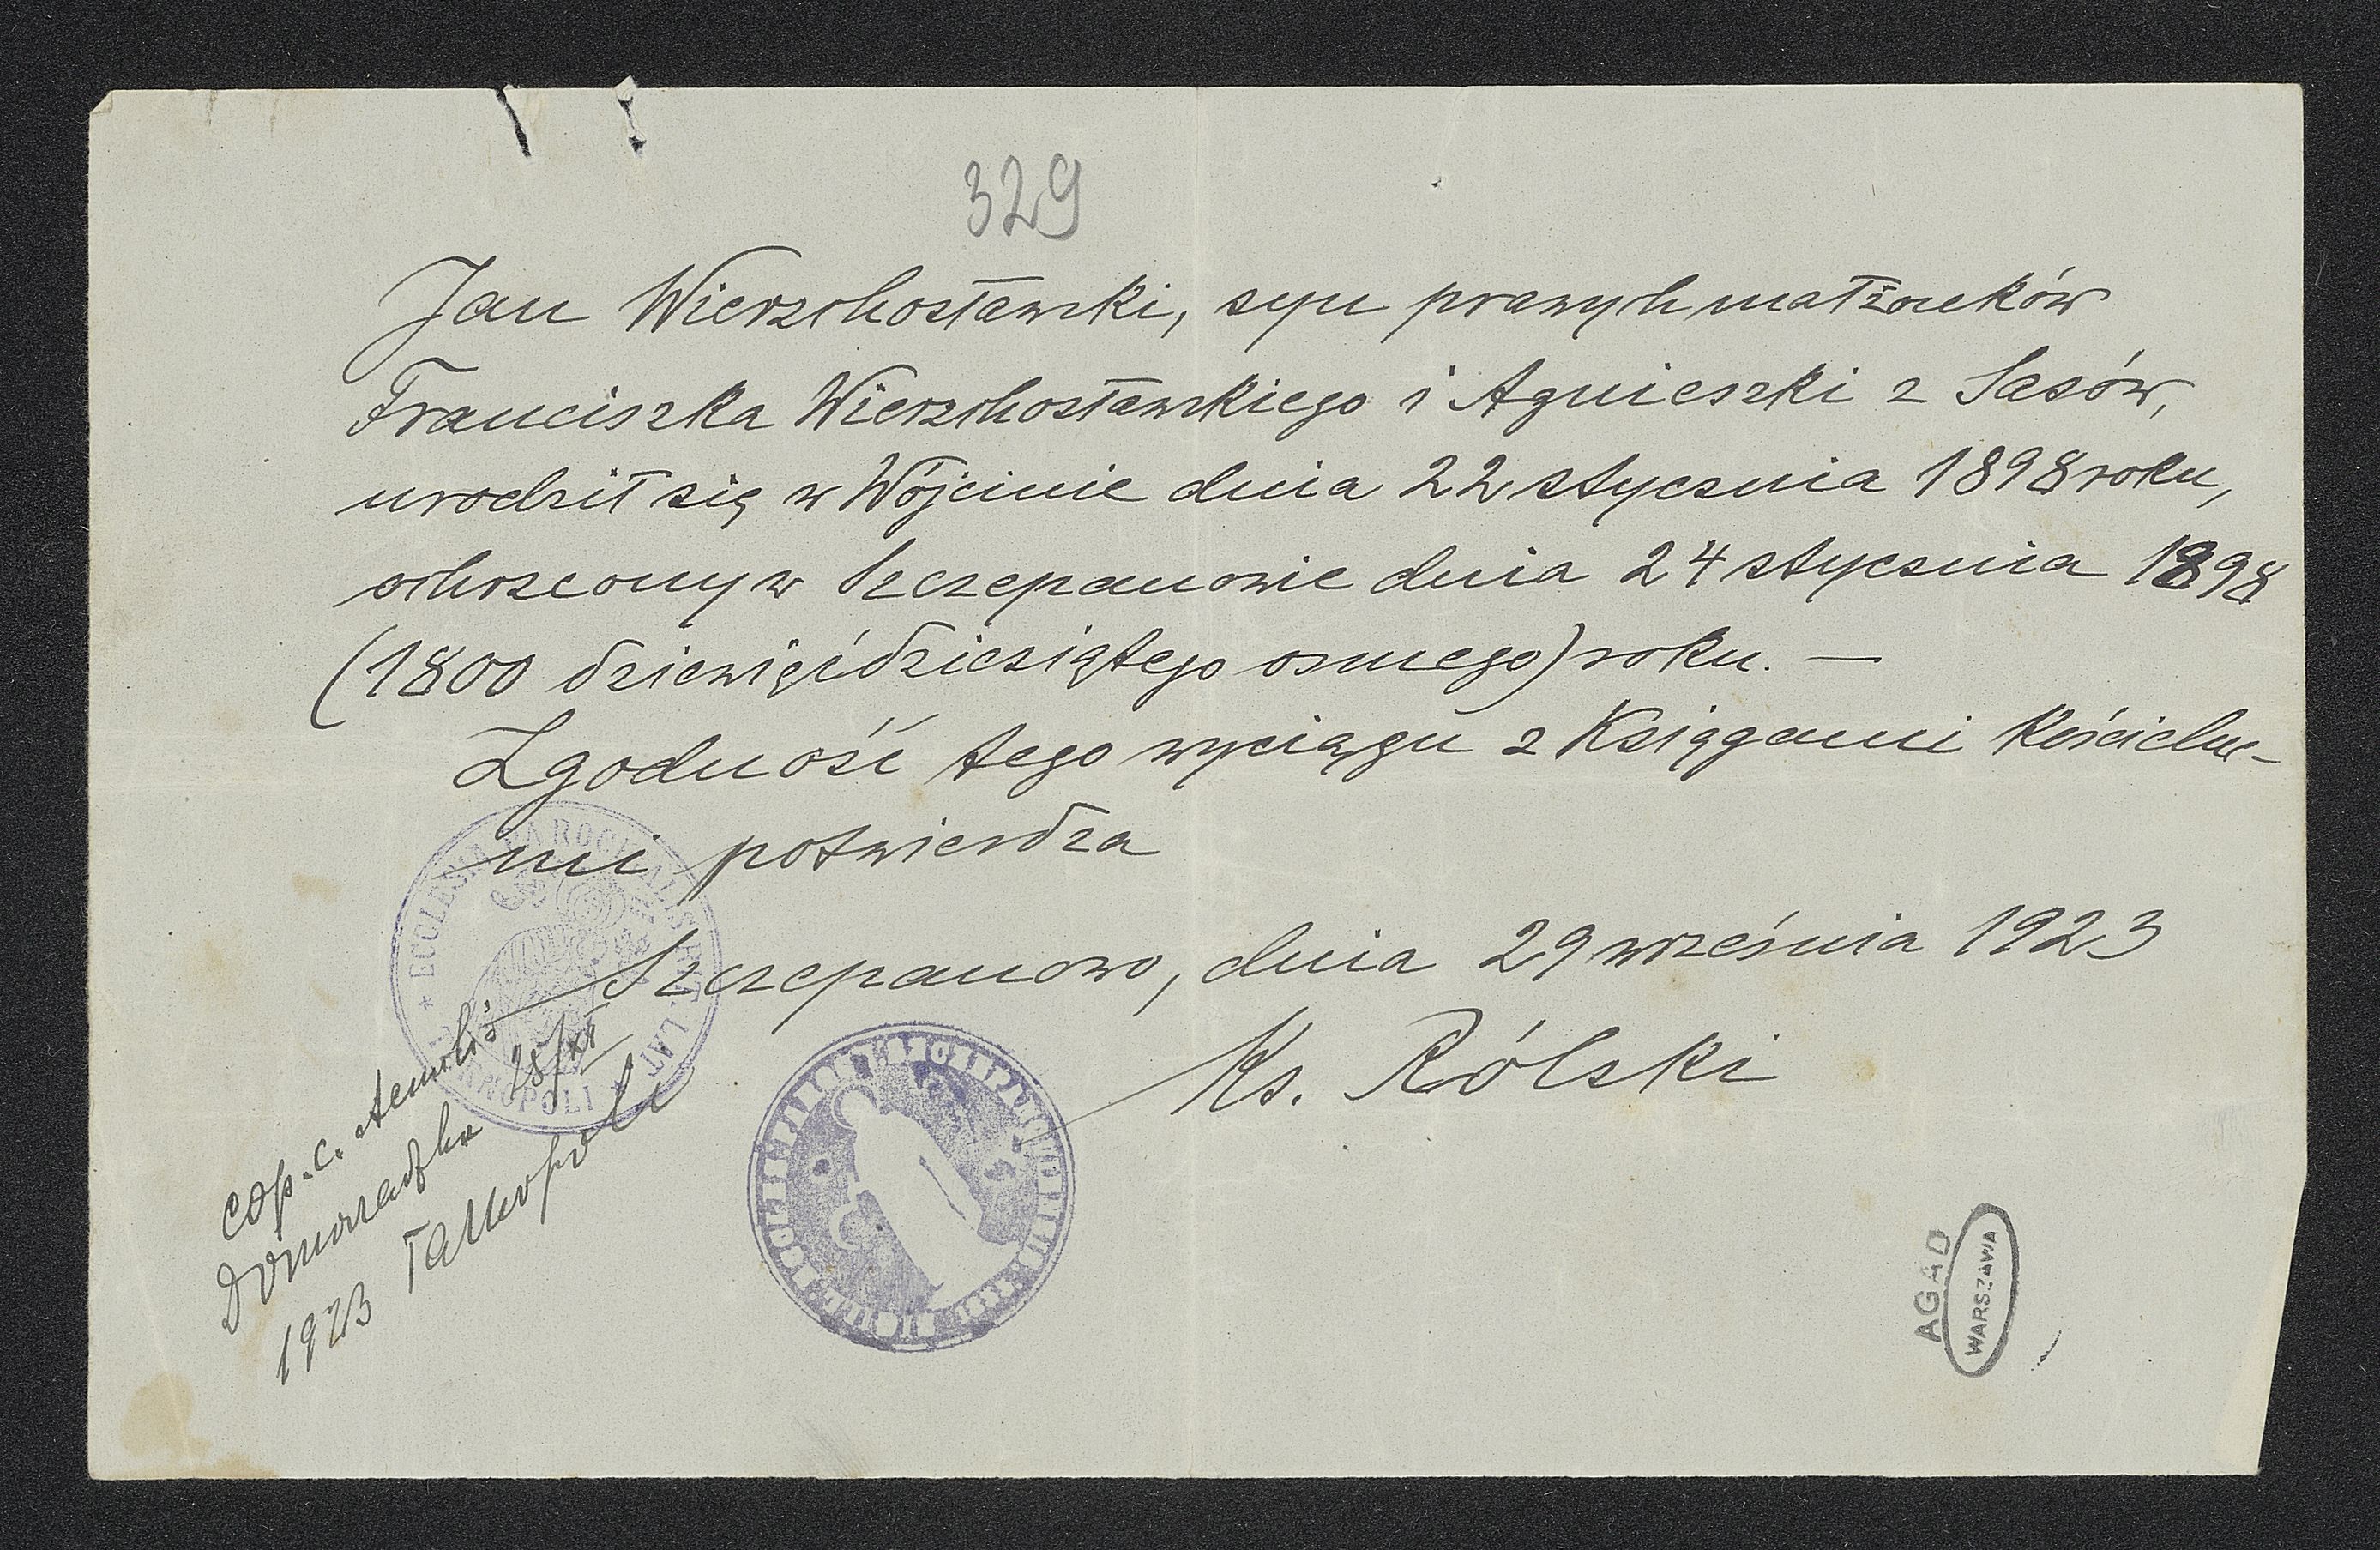 329
Jan Wierzchosławski, syn prawych małżonków
Franciszka Wierzchosławskiego i Agnieszki z Sasów,
urodził się w Wójcinie dnia 22 stycznia 1898 roku,
ochrzcony w Szczepanowie dnia 24 stycznia 1898
(1800 dziewięćdziesiątego osmego) roku. —
Zgodność tego wyciągu z Księgami Kościelne-
mi potwierdza
Szczepanowo, dnia 29 września 1923
Ks. Rólski
ECCLESIA PAROCHIALIS LAT
cop. c.
28/XI
1923 Tarnopoli
AGAD
WARSZAWA